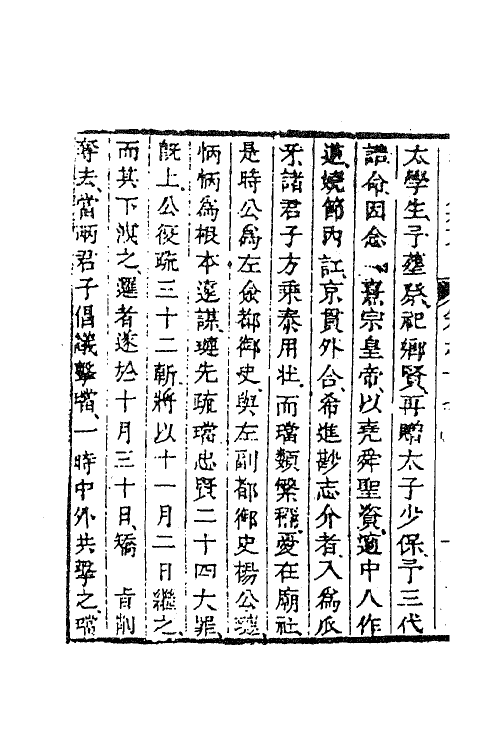 太學生予塟祭祀鄉賢再贈太子少保予三代
誥命因念 熹宗皇帝以堯舜聖資適中八作
道嬈節內訌京貫外合希進尠志介者入為瓜
牙諸君子方乘泰用壯而璫類繁稱憂在廟社
是時公為左僉都御史與左副都御史楊公漣
恓恓為根本遠謀漣先疏璫忠賢二十四大罪
既上公復疏三十二斬將以十一月二日繼之
而其下淚之邏者遂於十月三十日矯 旨削
奪去當兩君子倡議擊璫一時中外共擧之璫